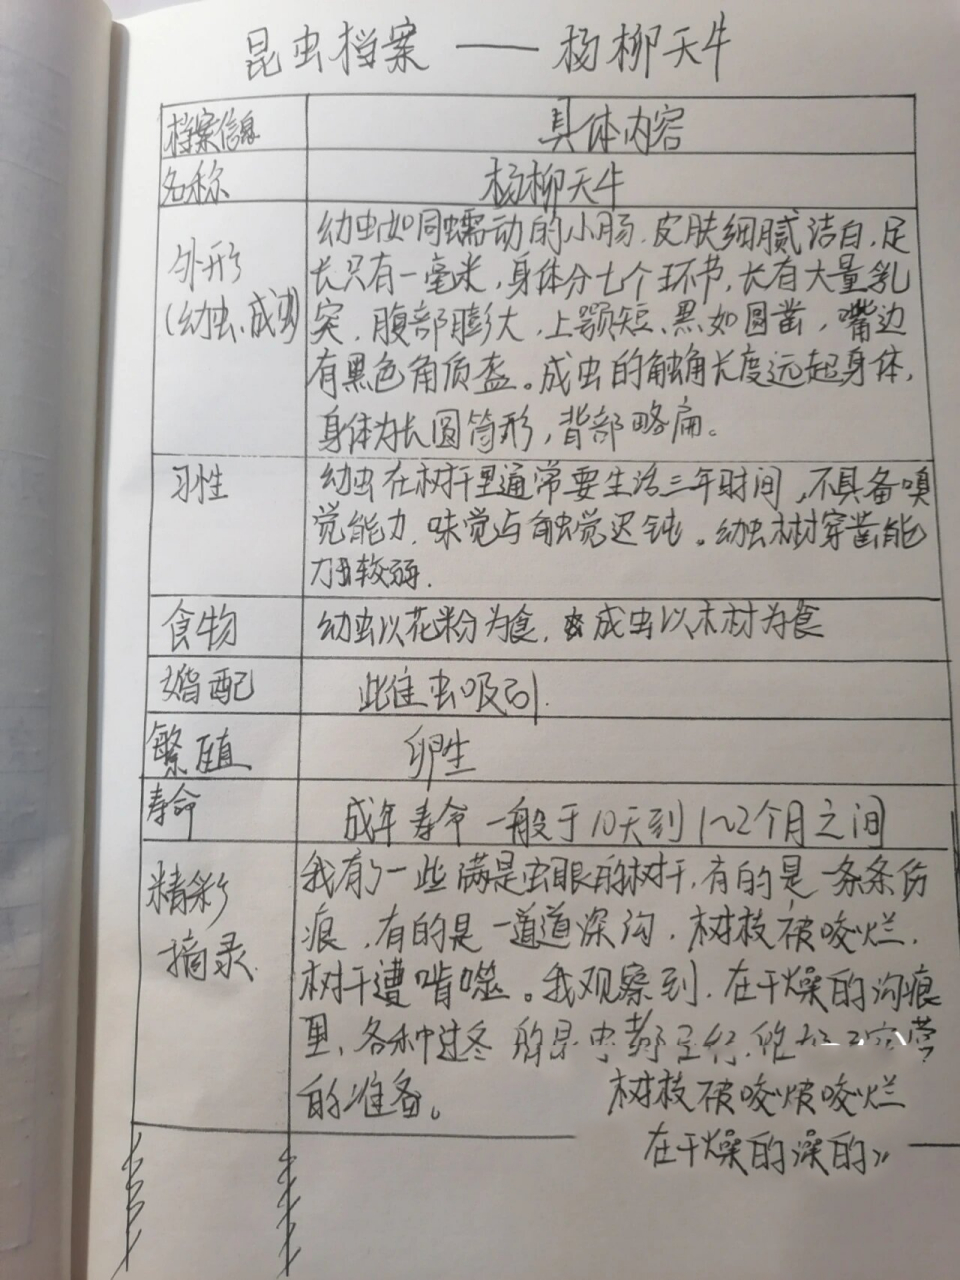 昆虫档案——杨柳天牛
档案信息 具体内容
名称 杨柳天牛
外形
(幼虫、成虫)
幼虫如同蠕动的小肠,皮肤细腻洁白,足
长只有一毫米,身体分七个环节,长有大量乳
突,腹部膨大,上颚短、黑如圆凿,嘴边
有黑色角质盔。成虫的触角长度远超身体,
身体为长圆筒形,背部略扁。
习性
幼虫在树干里通常要生活三年时间,不具备嗅
觉能力,味觉与触觉迟钝。幼虫树穿凿能
力较弱.
食物 幼虫以花粉为食,成虫以木材为食
婚配 此隹虫吸引.
繁殖 卵生
寿命 成年寿命一般于10天到1~2个月之间
精彩
摘录
我有了一些满是虫眼的树干,有的是一条条伤
痕,有的是一道道深沟,树枝被咬烂,
树干遭啃噬。我观察到,在干燥的沟痕
里,各种过冬的昆虫都
的准备。 树枝被咬烂被咬烂
在干燥的澡的